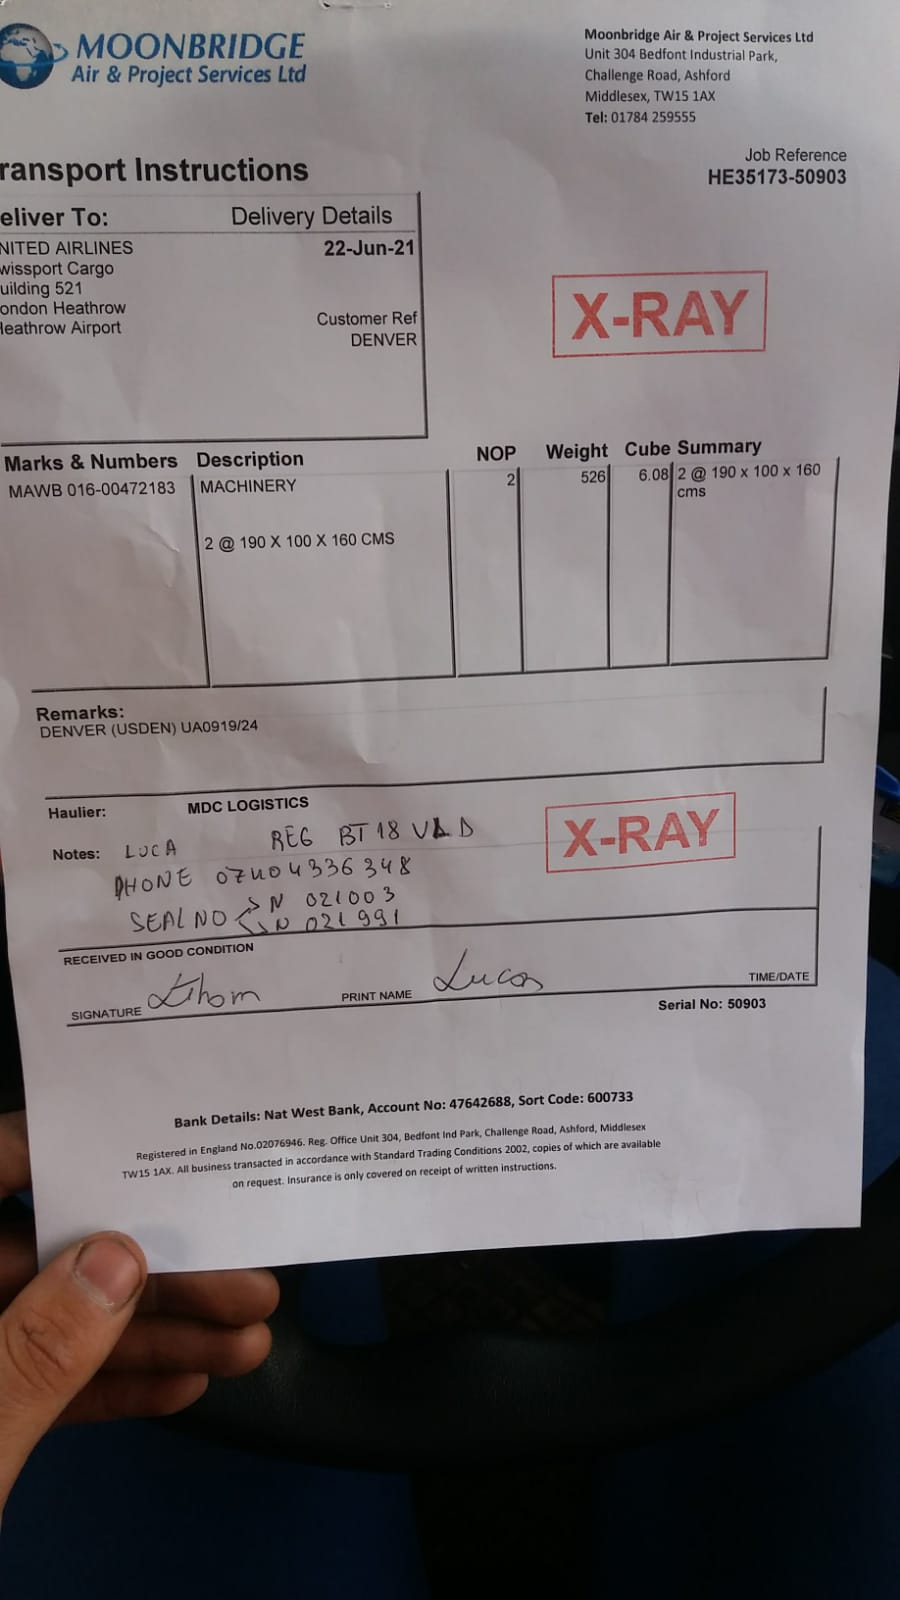 MOONBRIDGE
Air & Project Services Ltd
Moonbridge Air & Project Services Ltd
Unit 304 Bedfont Industrial Park,
Challenge Road, Ashford
Middlesex, TW15 1AX
Tel: 01784 259555
ransport Instructions
Job Reference
HE35173-50903
eliver To:
Delivery Details
NITED AIRLINES
22-Jun-21
wissport Cargo
uilding 521
ondon Heathrow
Heathrow Airport
Customer Ref
DENVER
X-RAY
Marks & Numbers Description NOP Weight Cube Summary
MAWB 016-00472183 MACHINERY 2 526 6.08 2 @ 190 x 100 x 160
cms
2 @ 190 X 100 X 160 CMS
Remarks:
DENVER (USDEN) UA0919/24
Haulier: MDC LOGISTICS
X-RAY
Notes: LUCA REG BT18
PHONE 07404336348
SEAL NO N 021003
N 021991
RECEIVED IN GOOD CONDITION
SIGNATURE
PRINT NAME Lucas
TIME/DATE
Serial No: 50903
Bank Details: Nat West Bank, Account No: 47642688, Sort Code: 600733
Registered in England No.02076946. Reg. Office Unit 304, Bedfont Ind Park, Challenge Road, Ashford, Middlesex
TW15 1AX. All business transacted in accordance with Standard Trading Conditions 2002, copies of which are available
on request. Insurance is only covered on receipt of written instructions.